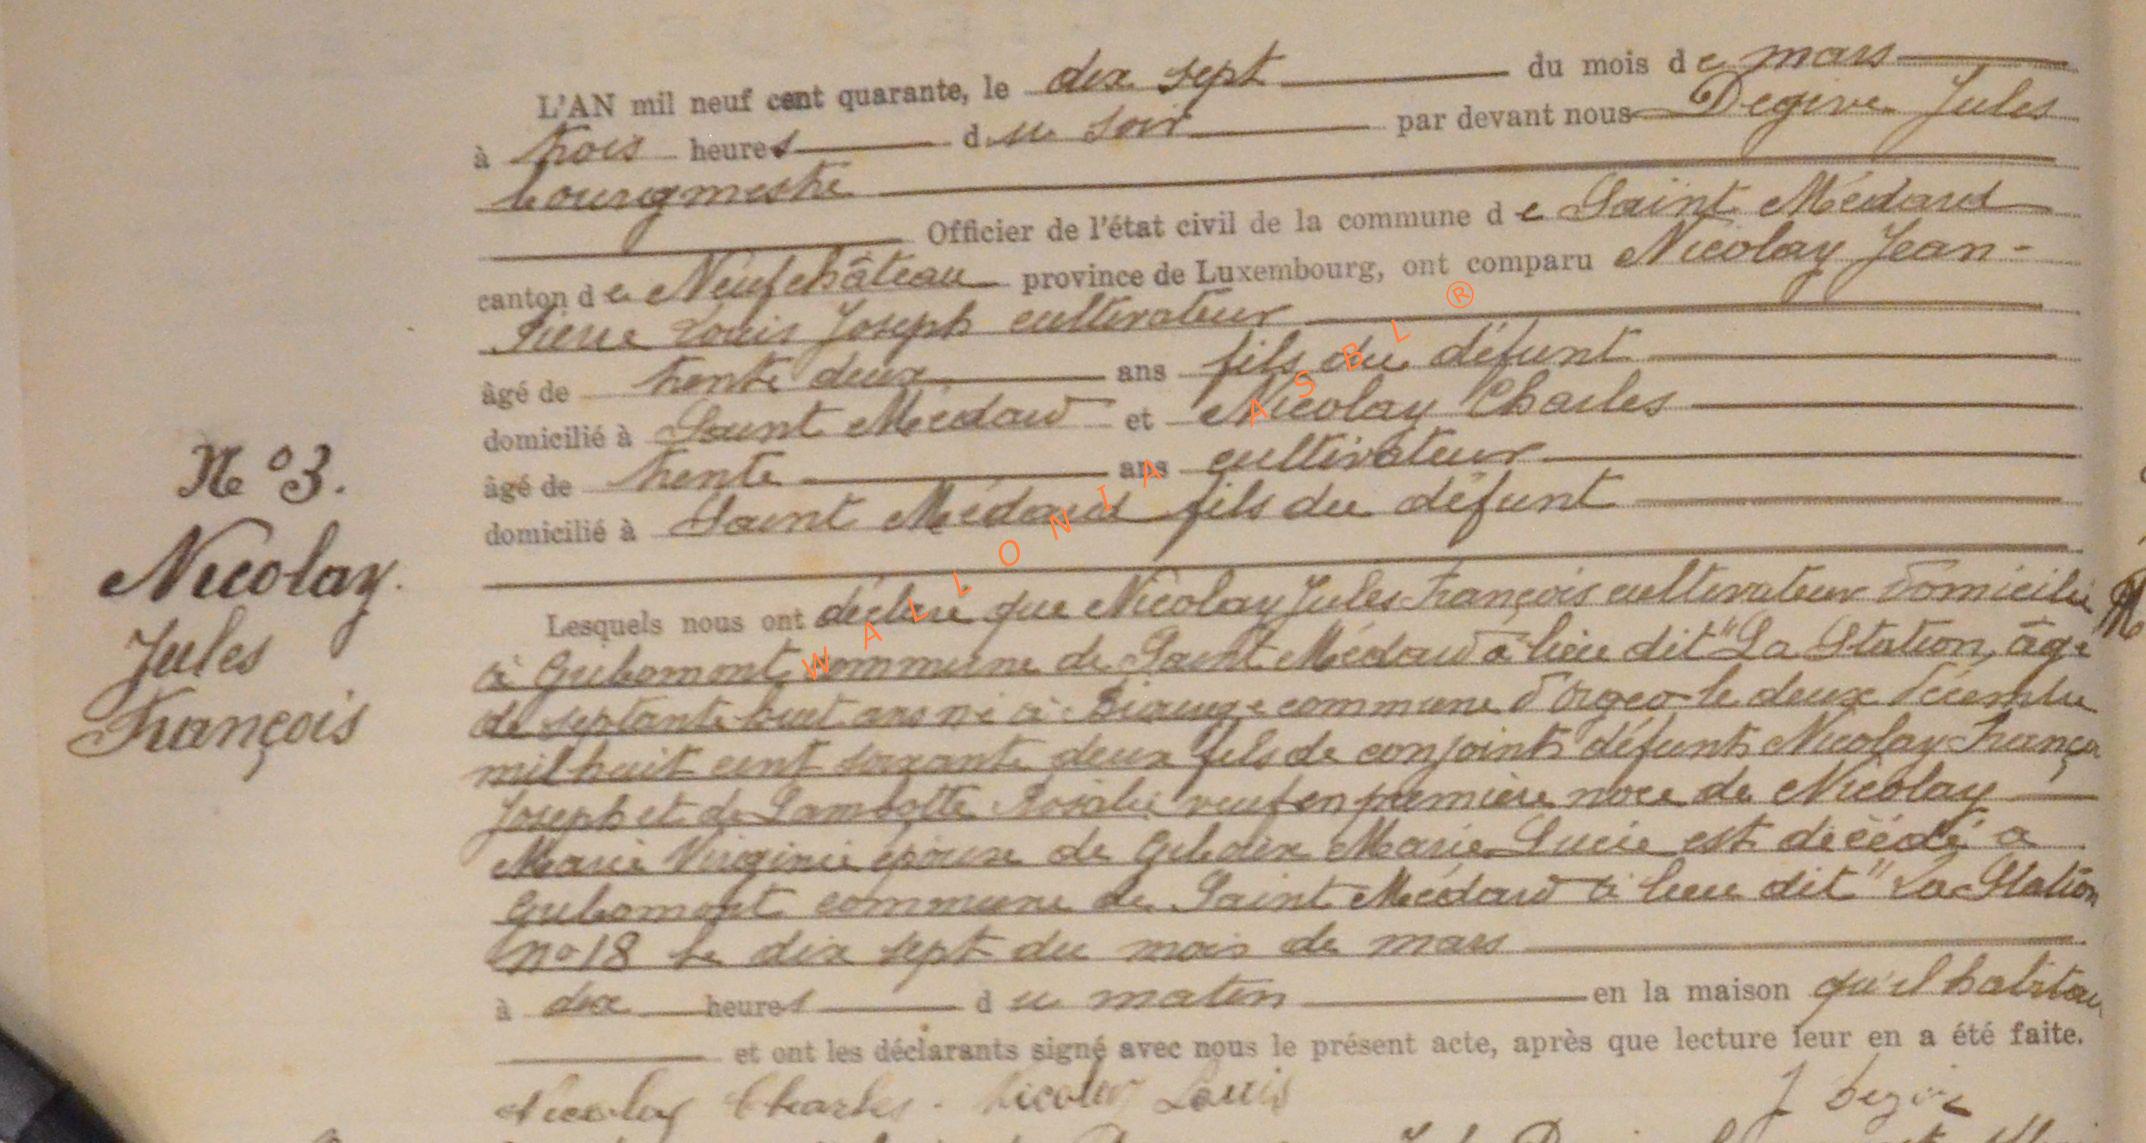 L'AN mil neuf cent quarante, le dix sept du mois de mars
à trois heures du soir par devant nous Degive Jules
bourgmestre
Officier de l'état civil de la commune de Saint Médard
canton de Neufchâteau province de Luxembourg, ont comparu Nicolay Jean-
Pierre Louis Joseph cultivateur
âgé de trente deux ans fils du défunt
domicilié à Saint Médard et Nicolay Charles
âgé de trente ans cultivateur
domicilié à Saint Médard fils du défunt
N° 3.
Nicolay
Jules
François
Lesquels nous ont déclaré que Nicolay Jules François cultivateur domicilié
à Gribomont commune de Saint Médard à lieu dit "La Station, âgé
de septante huit ans né à Biourge commune d'Orgeo le deux décembre
mil huit cent soixante deux fils de conjoints défunts Nicolay França
Joseph et de Lambotte Rosalie veuf en première noce de Nicolay
Marie Virginie époux de Marie Lucie est décédé a
Gribomont commune de Saint Médard à lieu dit "La Station
n° 18 le dix sept du mois de mars
à dix heures du matin en la maison qu'il habitai
et ont les déclarants signé avec nous le présent acte, après que lecture leur en a été faite.
Nicolay Charles. Nicolay Louis J Degive
WALLONIA ASBL ®